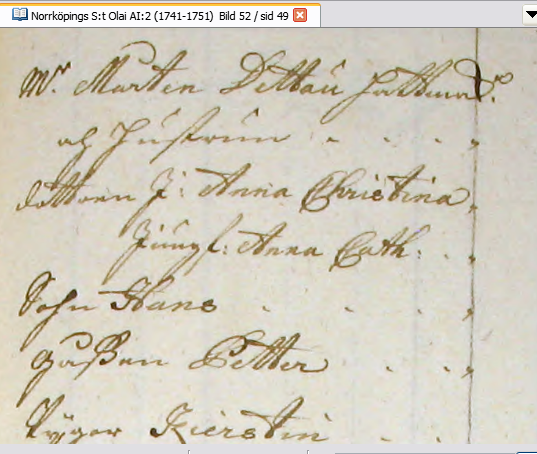 Norrköpings S:t Olai AI:2 (1741-1751) Bild 52 / sid 49
Mr. Marten Dettau Hattmak.
och Hustrun
dottren J: Anna Christina
Jungf: Anna Cath:
Sohn Hans
gaßen Petter
Kierstin